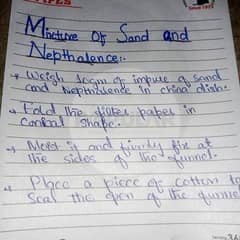 Since 1953
Mixture Of Sand and
Nepthalence:-
→ Weigh 10gm of impure a sand
and Nephthalence in china dish.
→ Fold the filter paper in
conical shape.
→ Moist it and firmly fix at
the sides of the funnel.
→ Place a piece of cotton to
seal the open of the funnel